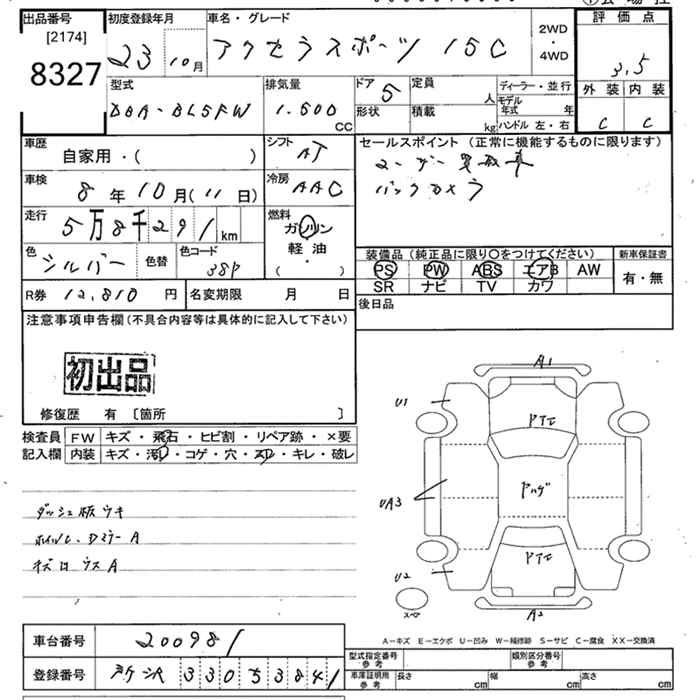 出品番号
[2174]
8327
初度登録年月
23 10月
車名・グレード
アクセラスポーツ 15C
2WD
・
4WD
評価点
3.5
外装 内装
C C
型式
DBA-BL5FW
排気量
1.500
CC
ドア
5
形状
定員
人
積載
kg
ディーラー・並行
モデル年式 年
ハンドル 左・右
車歴
自家用・( )
シフト
AT
車検
8年10月(11日)
冷房
AAC
走行
5万8千291km
燃料
ガソリン
軽・油
・
( )
色
シルバー
色替
色コード
38P
R券 12,810 円
名変期限 月 日
セールスポイント (正常に機能するものに限ります)
ユーザー買取車
バックカメラ
装備品(純正品に限り○をつけてください)
PS PW ABS エアB AW
SR ナビ TV カワ
新車保証書
有・無
後日品
注意事項申告欄(不具合内容等は具体的に記入して下さい)
初出品
修復歴 有 〔箇所 〕
検査員
記入欄
FW キズ・飛石・ヒビ割・リペア跡・×要
内装 キズ・汚レ・コゲ・穴・スレ・キレ・破レ
ダッシュ板ウキ
ホイルC、DミラーA
キズ
ウスA
A1
U1
UA3
U2
A2
スペア
A－キズ E－エクボ U－凹み W－補修跡 S－サビ C－腐食 XX－交換済
車台番号 200981
登録番号
33053841
型式指定番号
参考
類別区分番号
参考
車庫証明用
参考
長さ cm
幅 cm
高さ cm